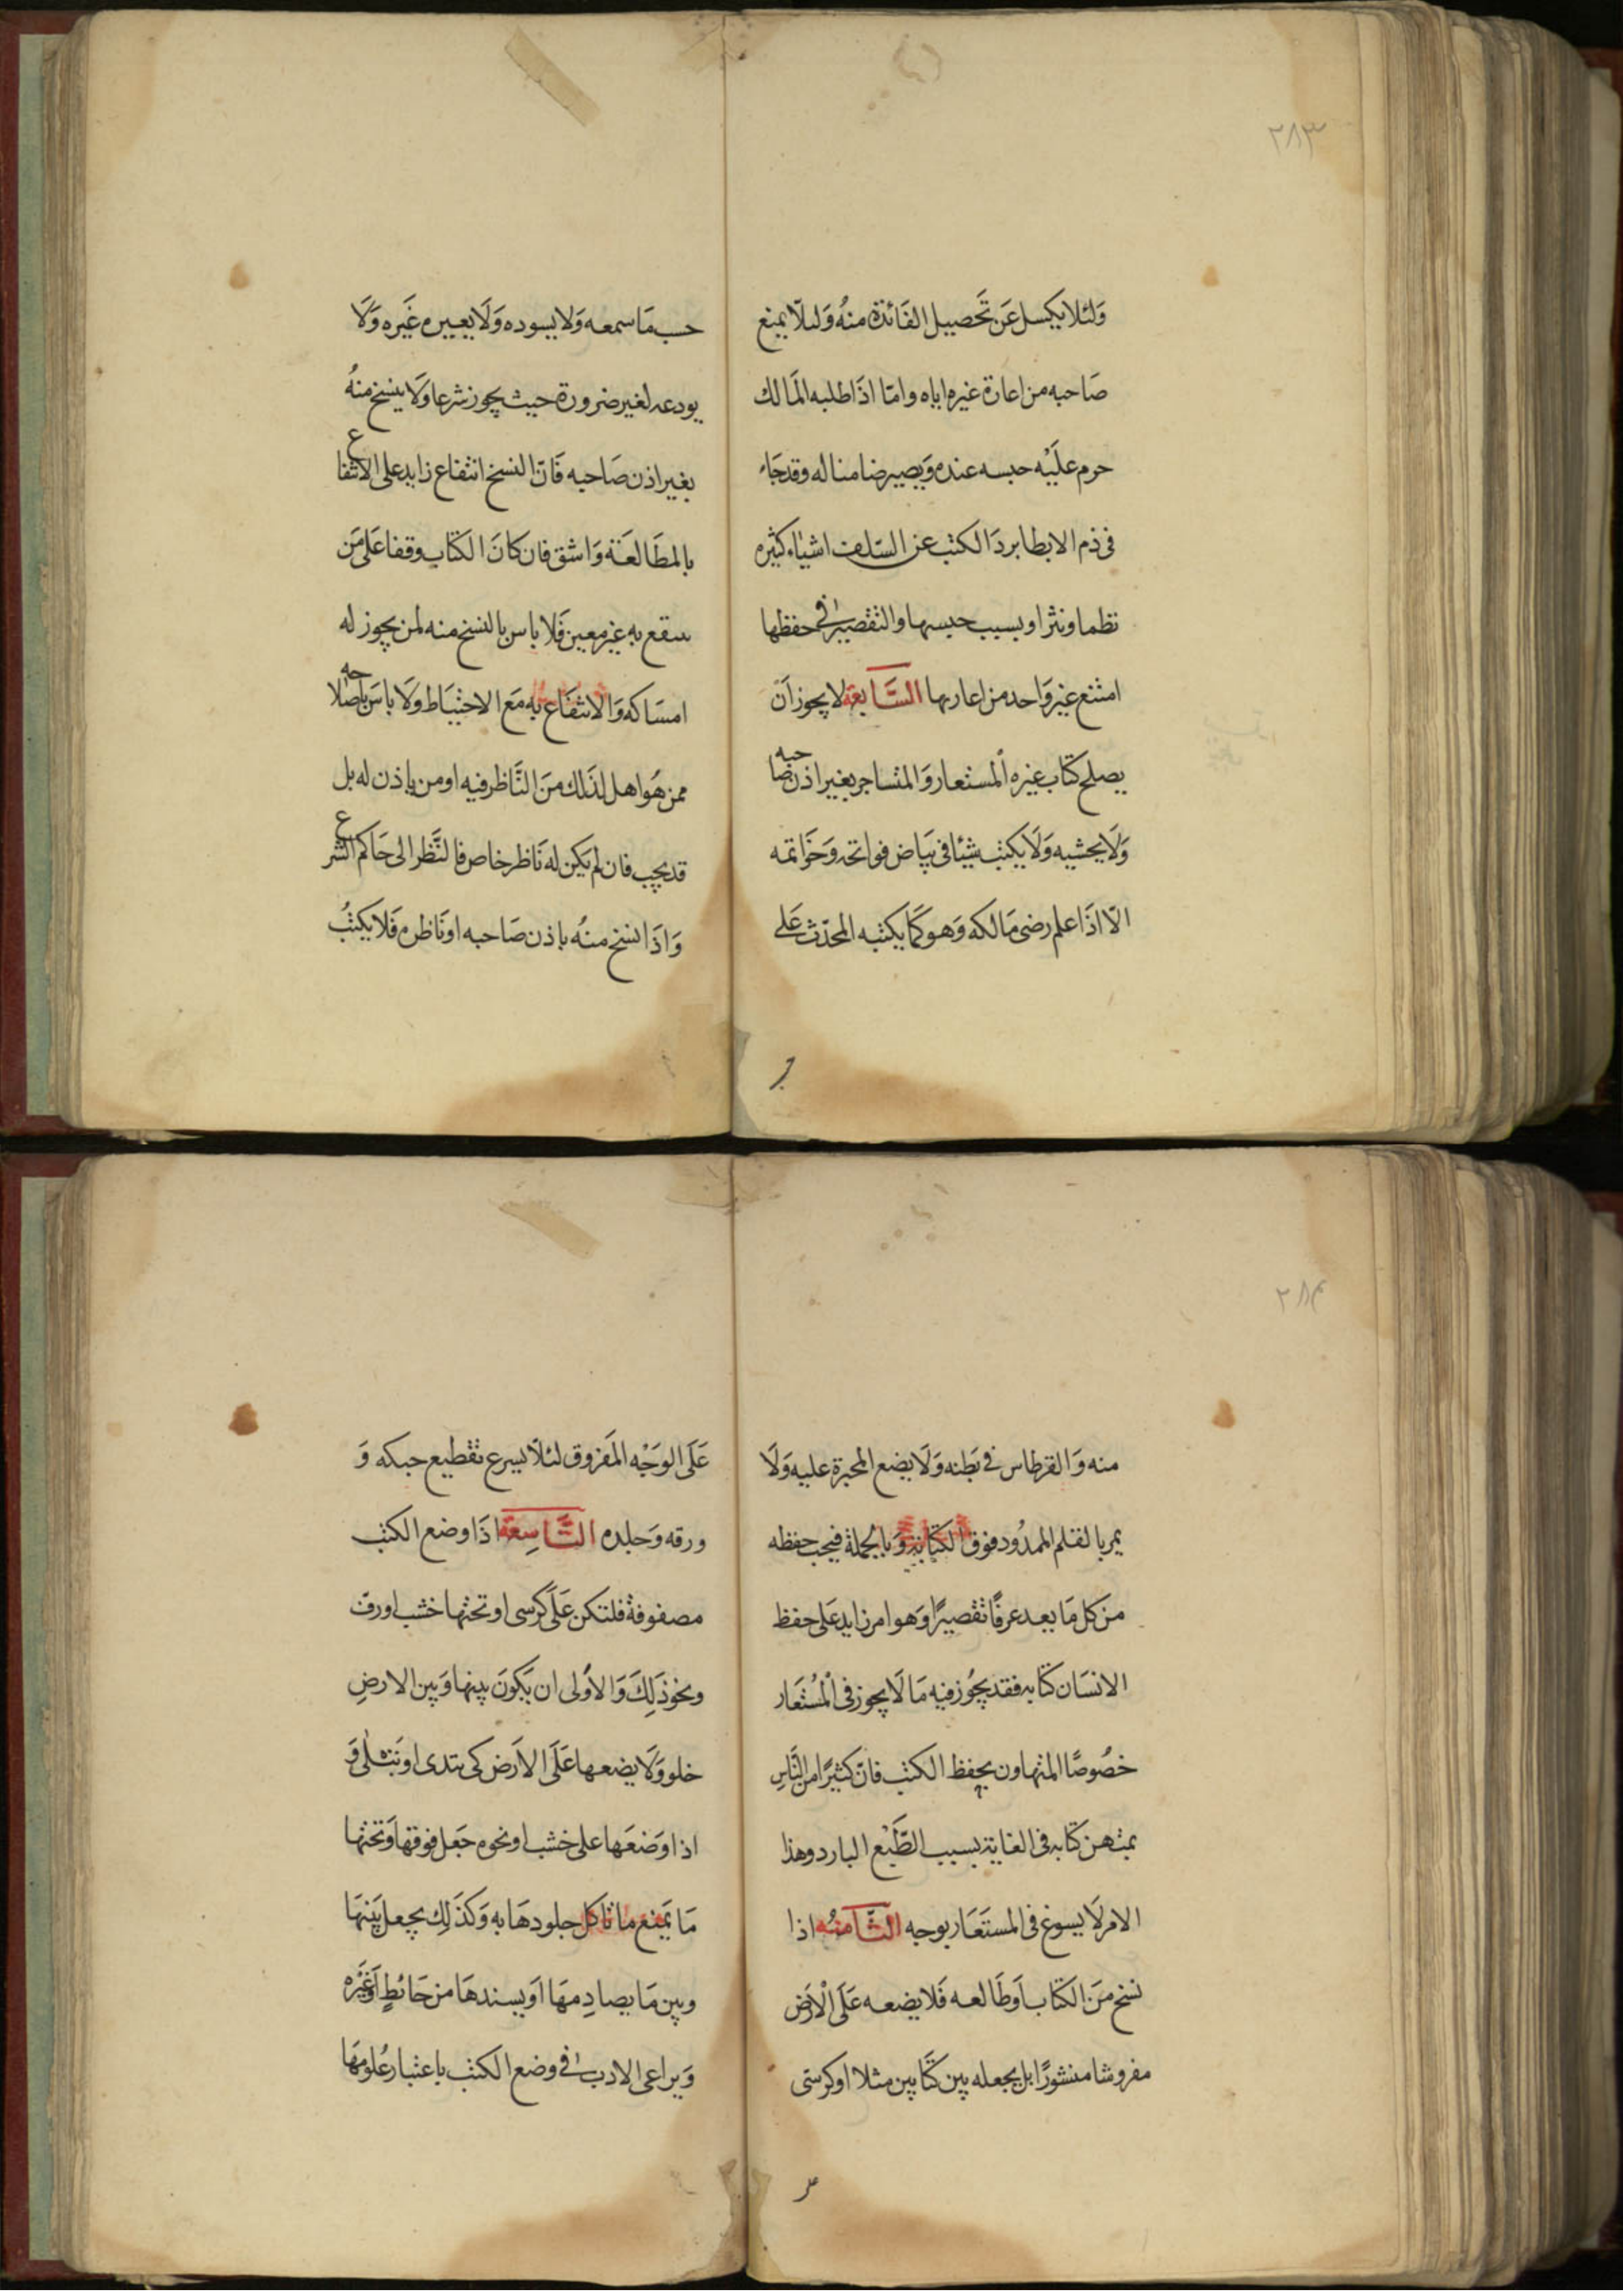 ٢٨٣
وَلئلا يكسل عَن تَحصيل الفَائدة منهُ وَليلّا يمنع
صَاحبه من اعارة غيره اياه وامّا اذَا طلبه المَالك
حرم علَيْه حبسه عنده وَيصير ضامنا له وقد جَاء
فى ذم الابطا بردَ الكتب عن السّلف اشيَاء كثيره
نظما ونثرا وبسبب حبسها والتقصير فى حفظها
امتنع غير وَاحد من اعارتها السَّابعة لا يجوز اَن
يصلح كتاب غيره المستعار وَالمتساجر بغير اذن صاحبه
وَلَا يحشيه وَلَا يكتب شيئا فى بيَاض فواتحه وَخَواتمه
الّا اذَا علم رضى مَالكه وَهو كَما يكتبه المحدّث عَلى
حسب مَا سمعه وَلا يسوده وَلَا يعيره غَيره وَلَا
يودعه لغير ضرورة حيث يجوز شرعا وَلَا ينسخ منهُ
بغير اذن صَاحبه فَانّ النسخ انتفاع زايد على الانتفاع
بالمطَالعَة وَاشق فان كانَ الكتَاب وقفا عَلى مَن
ينتفع به غير معين فَلا باس بالنسخ منه لمن يجوز له
امسَاكه وَالانتفَاع به مَع الاحتيَاط وَلَا باسَ باصلاحه
ممن هُو اهل لذَلك منَ النَّاظر فيه او من ياذن له بل
قد يجب فان لم يَكن له نَاظر خاص فالنَّظر الى حَاكم الشرع
وَاذَا نسخ منهُ باذن صَاحبه او نَاظره فَلا يكتبُ
٢٨٤
منه وَالقرطاس فى بَطنه وَلَا يضع المحبرة عليه وَلَا
يمر بالقلم الممدُود فوق الكتَابَة وَبالجملة فيجب حفظه
من كل مَا يعد عرفًا تقصيرًا وَهو امر زايد عَلى حفظ
الانسَان كتَابه فقد يجُوز فيه مَا لَا يجوز فى الْمُسْتعَار
خصُوصًا المتهاون بحفظ الكتب فانّ كثيرًا من النَّاسِ
يمتهن كتابه فى الغاية بسبب الطّبْع البارد وهذا
الامر لَا يسوغ فى المستَعَار بوجه الثَّامنُه اذا
نسخ منَ الكتَاب اَو طَالعه فَلا يضعه عَلَى الْاَرض
مفروشا منشورًا بل يجعله بين كتَابين مثلا او كرسّى
عَلَى الوَجْه المَعروق لئلاّ يسرع تقطيع حبكه وَ
ورقه وَجلده التَّاسِعَة اذَا وضع الكتب
مصفوفة فلتكن عَلَى كرسى او تحتها خشب او رف
ونحو ذَلِكَ وَالاُولى ان يَكونَ بينها وَبين الارضِ
خلو وَلَا يضعها عَلَى الاَرض كى تتدى او تَبتلى وَ
اذا وَضعَها على خشب او نحوه جَعل فوقها وَتحتها
مَا يَمنع ما تاكل جلودهَا به وَكذَلِك يجعل بَينهَا
وبين مَا يصادِمهَا اَو يسندهَا من حَائطٍ اَو غَيْره
وَيراعى الادب فى وضع الكتب باعتبار عُلومهَا